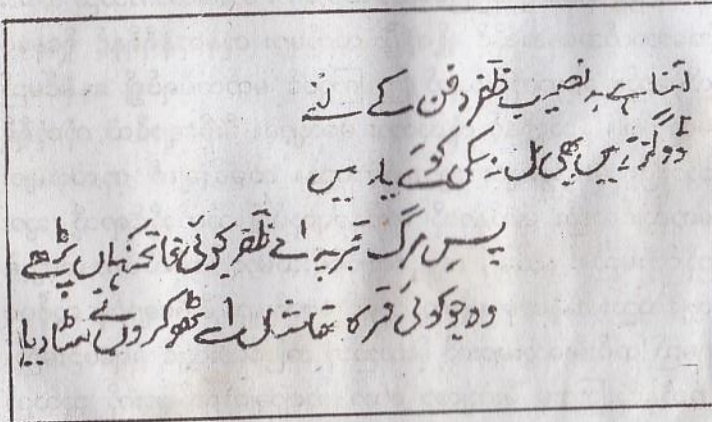 کتنا ہے بد نصیب ظفر دفن کے لئے
دو گز زمیں بھی مل نہ سکی کوئے یار میں
پسِ مرگ قبر پہ اے ظفر کوئی فاتحہ کہاں پڑھے
وہ جو کوئی قبر کا تھا نشاں اسے ٹھوکروں نے مٹا دیا